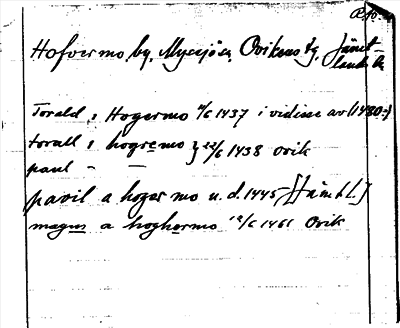 Hofvermo by, Myssjö sn, Ovikens tg, Jämt-
lands l.
Torald i Hogermo 4/6 1437 i vidisse av (1480:)
torall i hogremo } 22/6 1438 Ovik
paul –
pavil a hoger mo u.d. 1445, [Jämtl.]
magns a hoghermo 12/6 1461 Ovik